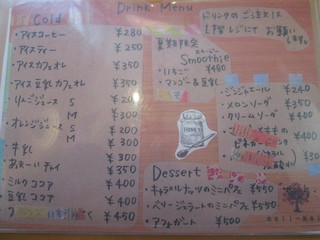 Drink Menu
Cold
・アイスコーヒー ¥280
・アイスティー ¥250
・アイスカフェオレ ¥350
・アイス豆乳カフェオレ ¥350
・りんごジュース S ¥200
M ¥300
・オレンジジュース S ¥200
M ¥300
・牛乳 ¥300
・あまーいチャイ ¥350
ミルクココア ¥400
豆乳ココア ¥400
¥450
ドリンクのご注文は
1階レジにてお願い
します。
夏期限定
スムージー
Smoothie
・いちご ¥450
・マンゴー&豆乳
・ジンジャエール ¥240
・メロンソーダ ¥350
・クリームソーダ ¥400
Dessert
・キャラメルナッツのミニパフェ ¥550
・ベリージェラートのミニパフェ ¥550
・アフォガード ¥500